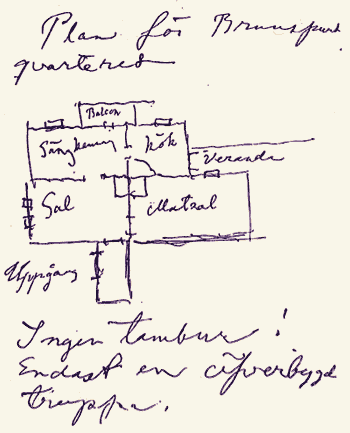 Plan för Brunnspark
quarteret
Balcon
Sängkamm
Kök
Veranda
Sal
Matsal
Uppgång
Ingen tambur!
Endast en öfverbygd
trappa.